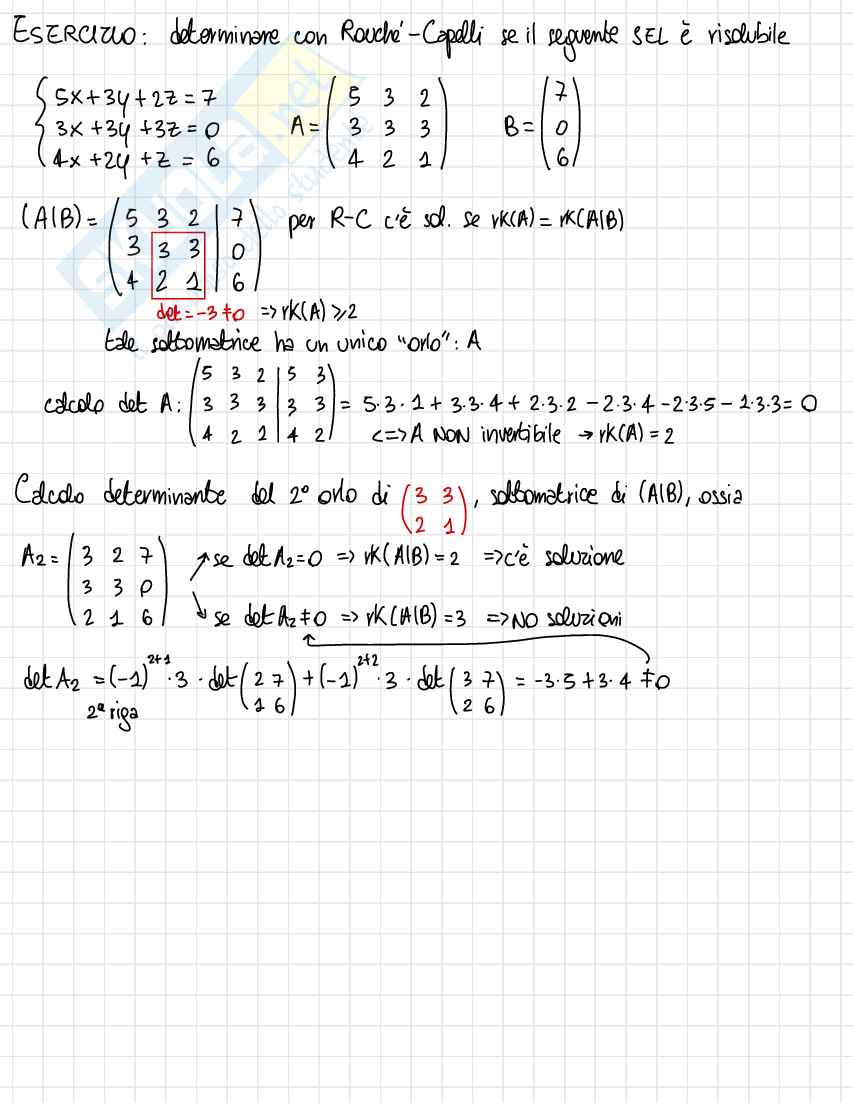 ESERCIZIO: determinare con Rouché-Capelli se il seguente SEL è risolubile
{ 5x+3y+2z=7
3x+3y+3z=0
4x+2y+z=6
A= ( 5 3 2
3 3 3
4 2 1 )
B= ( 7
0
6 )
(A|B)= ( 5 3 2 | 7
3 3 3 | 0
4 2 1 | 6 )
per R-C c'è sol. se rK(A)=rK(A|B)
det=-3≠0 => rK(A)≥2
tale sottomatrice ha un unico "orlo": A
calcolo det A: ( 5 3 2 | 5 3
3 3 3 | 3 3
4 2 1 | 4 2 )
= 5·3·1 + 3·3·4 + 2·3·2 - 2·3·4 - 2·3·5 - 1·3·3 = 0
<=> A NON invertibile → rK(A)=2
Calcolo determinante del 2° orlo di ( 3 3
2 1 ) , sottomatrice di (A|B), ossia
A2= ( 3 2 7
3 3 0
2 1 6 )
se det A2=0 => rK(A|B)=2 => c'è soluzione
se det A2≠0 => rK(A|B)=3 => NO soluzioni
det A2 = (-1)^2+1 · 3 · det ( 2 7
1 6 ) + (-1)^2+2 · 3 · det ( 3 7
2 6 ) = -3·5+3·4 ≠0
2ª riga